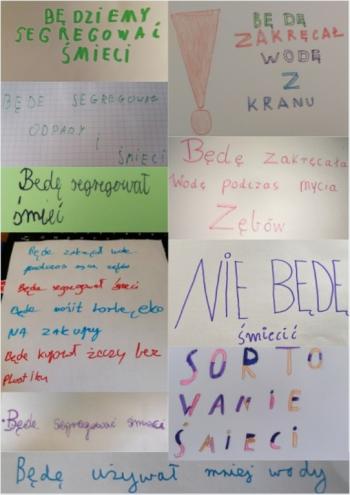 BĘDZIEMY
SEGREGOWAĆ
ŚMIECI
BĘDE SEGREGOWAŁ
ODPADY
I
ŚMIECI
Będę segregował
śmieci
Będe zakręcał wode
podczas mycia zębów
Będe segregował śmieci
Będe nosił torbę eko
NA zakupy
Będe kupował rzeczy bez
plastiku
Będe segregować śmieci
Będę używał mniej wody
BĘDĘ
ZAKRĘCAŁ
WODĘ
Z
KRANU
Będę zakręcała
Wodę podczas mycia
Zębów
NIE BĘDĘ
śmiecić
SORTO
WANIE
ŚMIECI